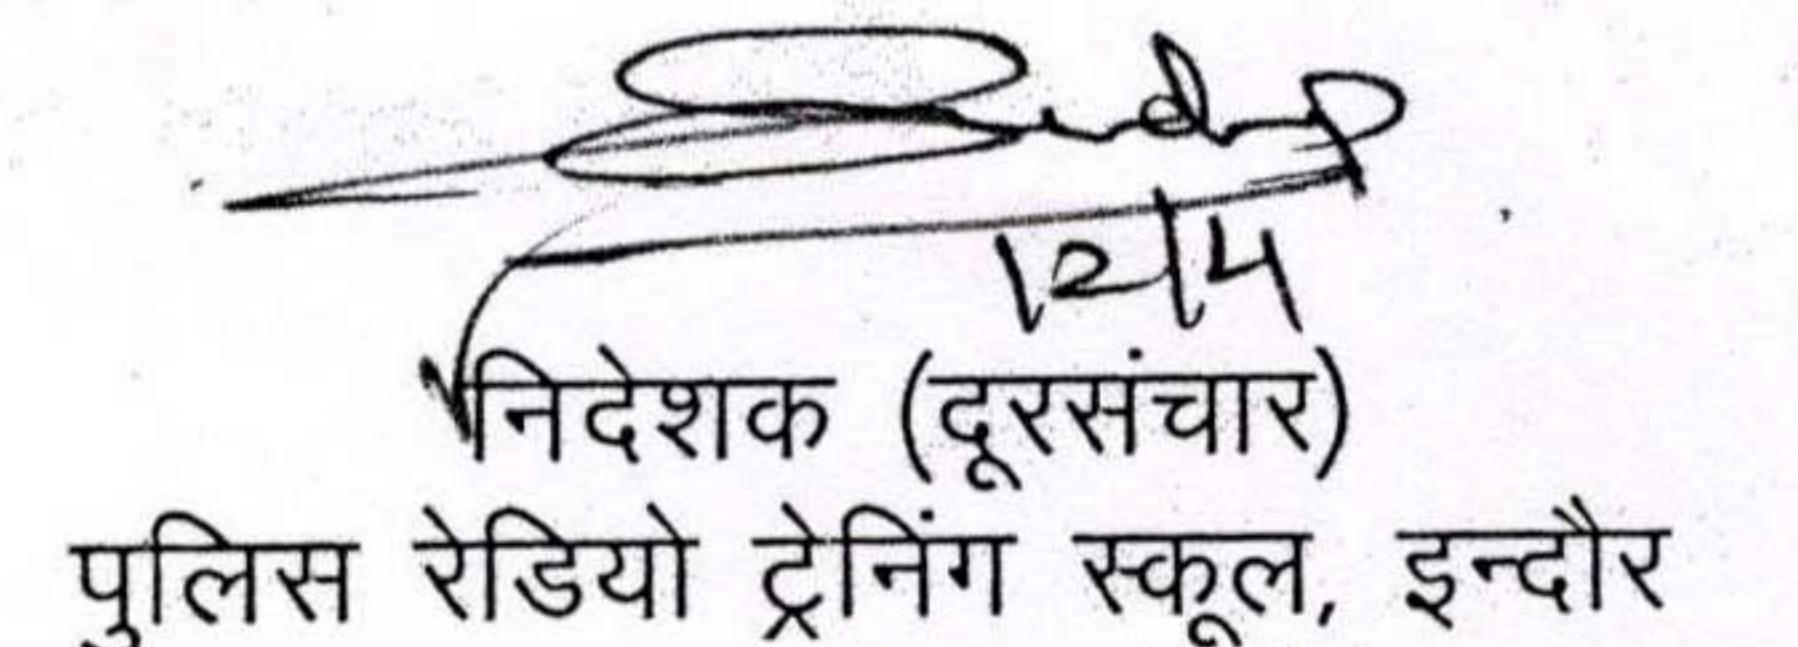 12/4
निदेशक (दूरसंचार)
पुलिस रेडियो ट्रेनिंग स्कूल, इन्दौर